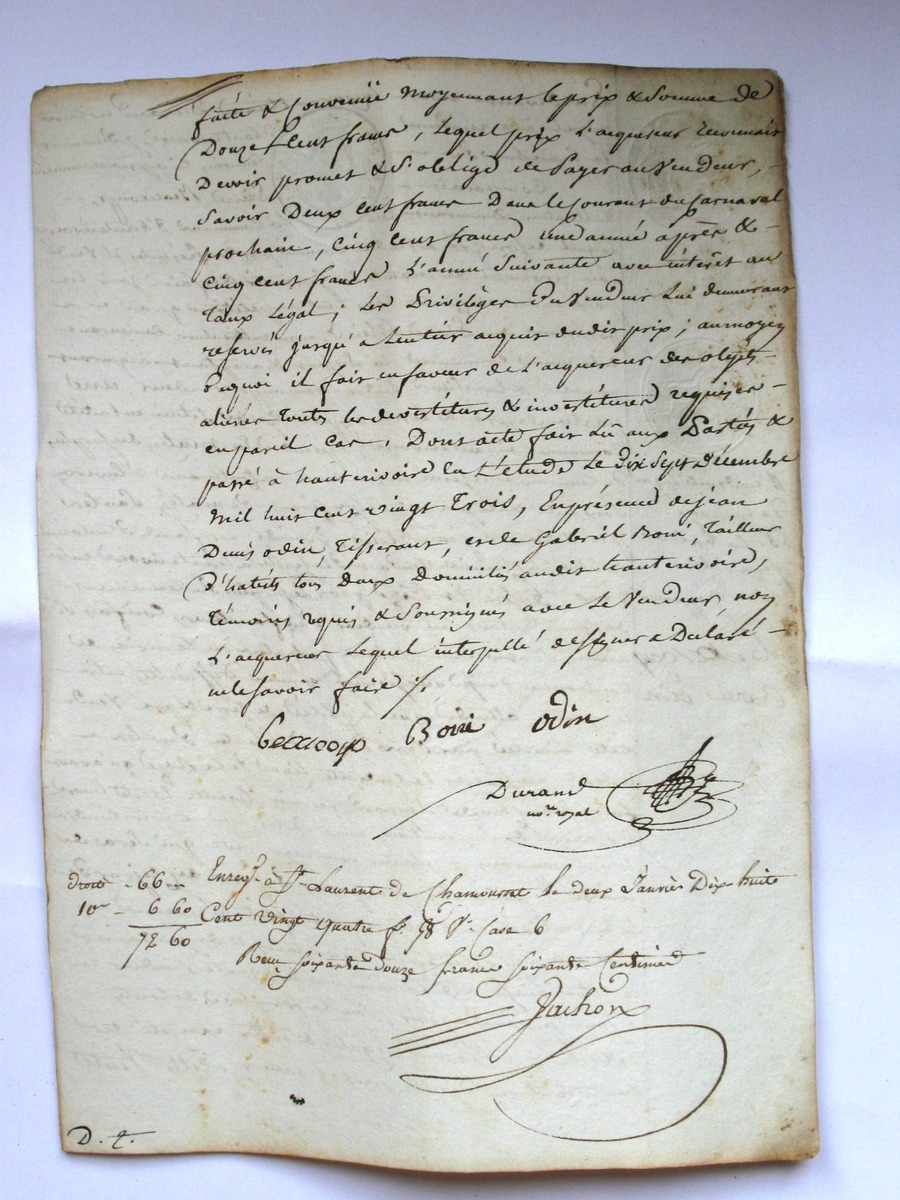 faite & convenüe moyennant le prix & Somme de
Douze Cent francs, lequel prix L'acquereur reconnait
Devoir promet & S'oblige de Payer au Vendeur, -
Savoir Deux cent francs Dans le Courant du Carnaval
prochain, cinq cent francs une année après & -
cinq cent francs L'année Suivante avec intérêt au
Taux Légal; Les Privilèges du Vendeur Lui demeurant
reservés jusqu'a Lentier acquit dudit prix; au moyen
Dequoi il fait en faveur de L'acquereur des objets
alienés touts les devestitures & investitures requises -
en pareil cas. Dont acte fait Lû aux Parties &
passé à hauterivoire En L'etude Le Dix Sept Décembre
mil huit cent vingt Trois, En présence de jean
Denis odin, Tisserant, et de Gabriel Boiri, Tailleur
D'habits tous deux domiciliés audit hauterivoire,
Témoins requis & Soussignés avec Le Vendeur, non
L'acquereur Lequel interpellé de Signer a Déclaré -
ne le Savoir faire /.
Beccoop Boiri odin
Durand
nore royal
droits - 66 - "
10e - 6 60
72 60
Enregt. à St. Laurent de Chamousset le deux Janvier Dix huit
Cent Vingt quatre fo. 78 Vo. Case 6
Reçu Soixante douze francs Soixante Centimes
D. t.